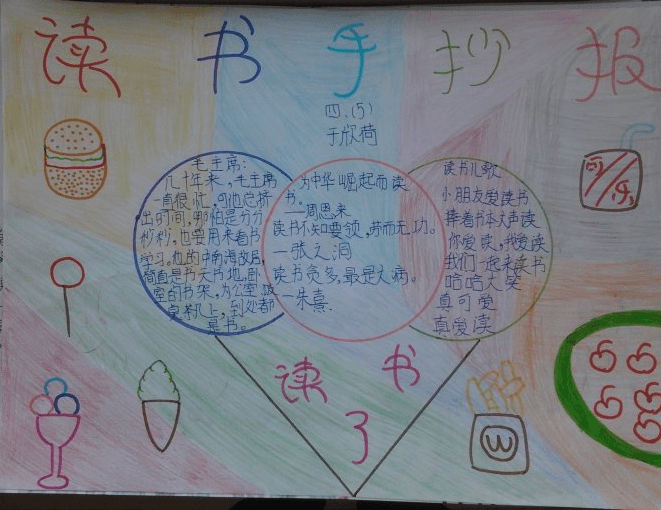 读书手抄报
四.(5)
于欣荷
毛主席:
几十年来,毛主席
一直很忙,可他总挤
出时间,哪怕是分分
秒秒,也要用来看书
学习。他的中南海故居,
简直是书天书地,卧
室的书架,办公室
桌茶几上,到处都
是书。
为中华崛起而读
书。
—周恩来
读书不知要领,劳而无功。
—张之洞
读书贪多,最是大病。
—朱熹.
读书儿歌
小朋友爱读书
捧着书本大声读
你爱读,我爱读
我们一起来读书
哈哈大笑
真可爱
真爱读
可乐
读书
了
W